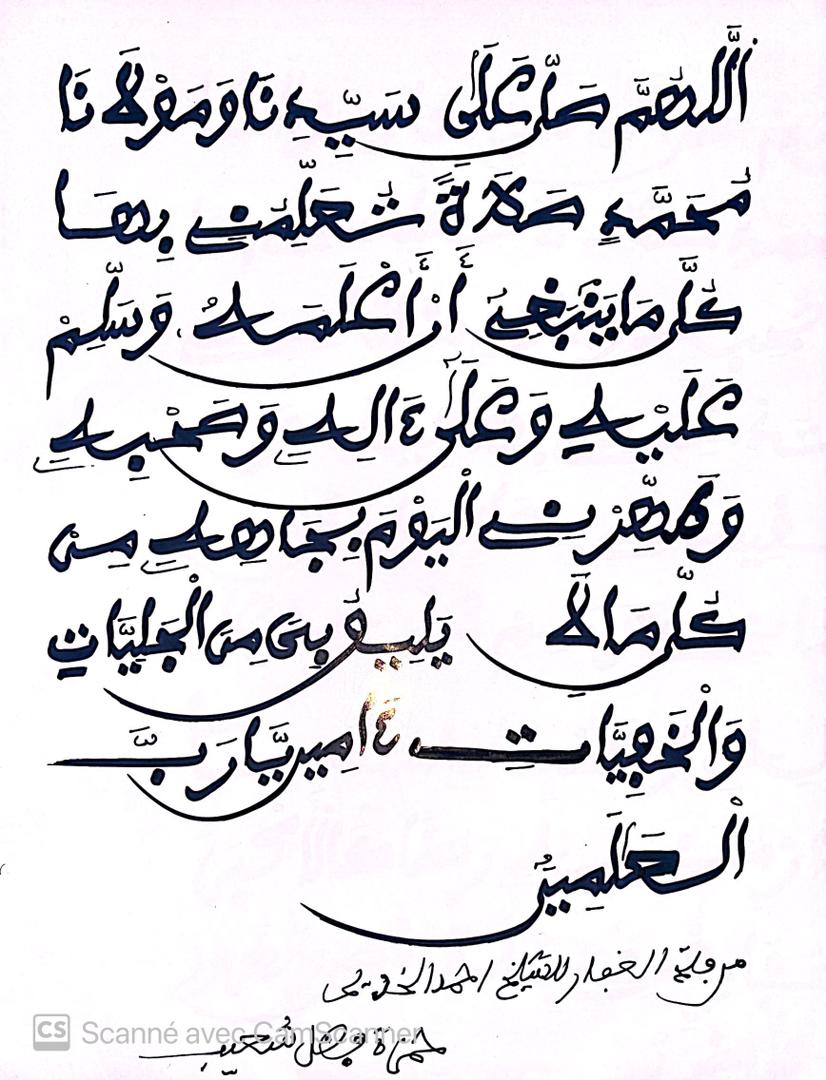 اَللَّهُمَّ صَلِّ عَلَى سَيِّدِنَا وَمَوْلَانَا
مُحَمَّدٍ صَلَاةً تُعَلِّمُنِي بِهَا
كُلَّ مَا يَنْبَغِي أَنْ أَعْلَمَهُ وَسَلِّمْ
عَلَيْهِ وَعَلَى ءَالِهِ وَصَحْبِهِ
وَطَهِّرْنِي الْيَوْمَ بِجَاهِهِ مِن
كُلِّ مَا لَا يَلِيقُ بِي مِنَ الْجَلِيَّاتِ
وَالْخَفِيَّاتِ ءَامِين يَّا رَبَّ
الْعَلَمِينَ
الغفار للشيخ احمد الخديمى
CS Scanné avec CamScanner
حمزة شعيب